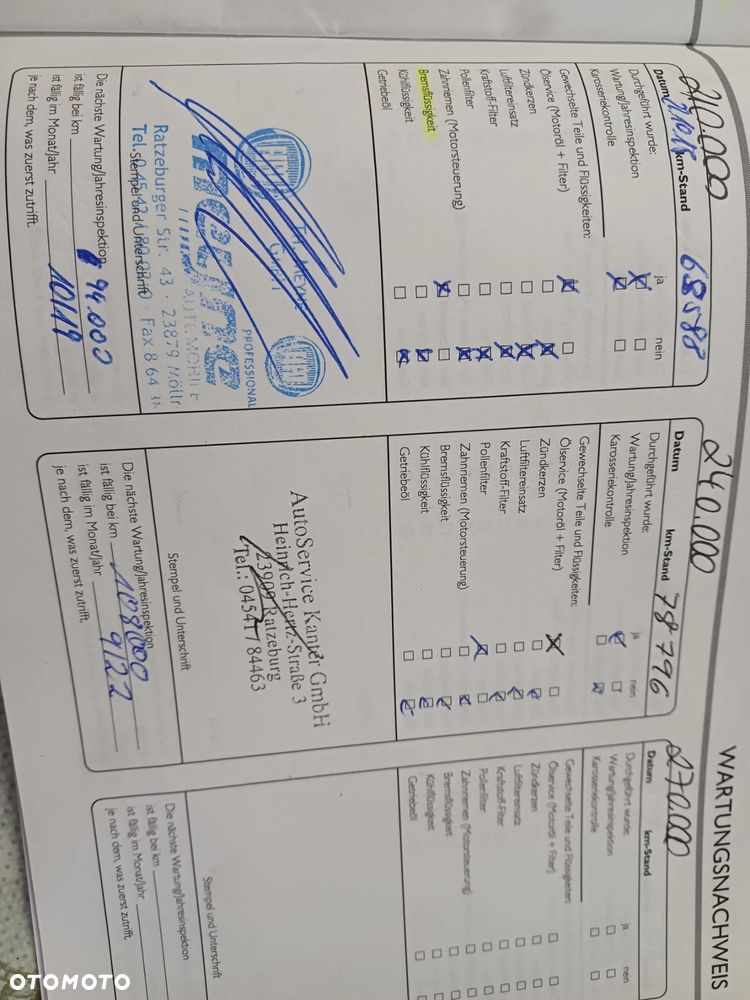 WARTUNGSNACHWEIS
210.000
Datum km-Stand 68588
Durchgeführt wurde: ja nein
Wartung/Jahresinspektion
Karosseriekontrolle
Gewechselte Teile und Flüssigkeiten:
Ölservice (Motoröl + Filter)
Zündkerzen
Luftfiltereinsatz
Kraftstoff-Filter
Pollenfilter
Zahnriemen (Motorsteuerung)
Bremsflüssigkeit
Kühlflüssigkeit
Getriebeöl
PROFESSIONAL
Ratzeburger Str. 43 · 23879 Mölln
Stempel und Unterschrift
Die nächste Wartung/Jahresinspektion
ist fällig bei km 94.000
ist fällig im Monat/Jahr 10/19
je nach dem, was zuerst zutrifft.
240.000
Datum km-Stand 78796
Durchgeführt wurde: ja nein
Wartung/Jahresinspektion
Karosseriekontrolle
Gewechselte Teile und Flüssigkeiten:
Ölservice (Motoröl + Filter)
Zündkerzen
Luftfiltereinsatz
Kraftstoff-Filter
Pollenfilter
Zahnriemen (Motorsteuerung)
Bremsflüssigkeit
Kühlflüssigkeit
Getriebeöl
AutoService Kanter GmbH
Heinrich-Hertz-Straße 3
23909 Ratzeburg
Tel.: 04541 / 84463
Stempel und Unterschrift
Die nächste Wartung/Jahresinspektion
ist fällig bei km 108000
ist fällig im Monat/Jahr 9/22
je nach dem, was zuerst zutrifft.
270.000
Datum km-Stand
Durchgeführt wurde: ja nein
Wartung/Jahresinspektion
Karosseriekontrolle
Gewechselte Teile und Flüssigkeiten:
Ölservice (Motoröl + Filter)
Zündkerzen
Luftfiltereinsatz
Kraftstoff-Filter
Pollenfilter
Zahnriemen (Motorsteuerung)
Bremsflüssigkeit
Kühlflüssigkeit
Getriebeöl
Stempel und Unterschrift
Die nächste Wartung/Jahresinspektion
ist fällig bei km
ist fällig im Monat/Jahr
je nach dem, was zuerst zutrifft.
OTOMOTO